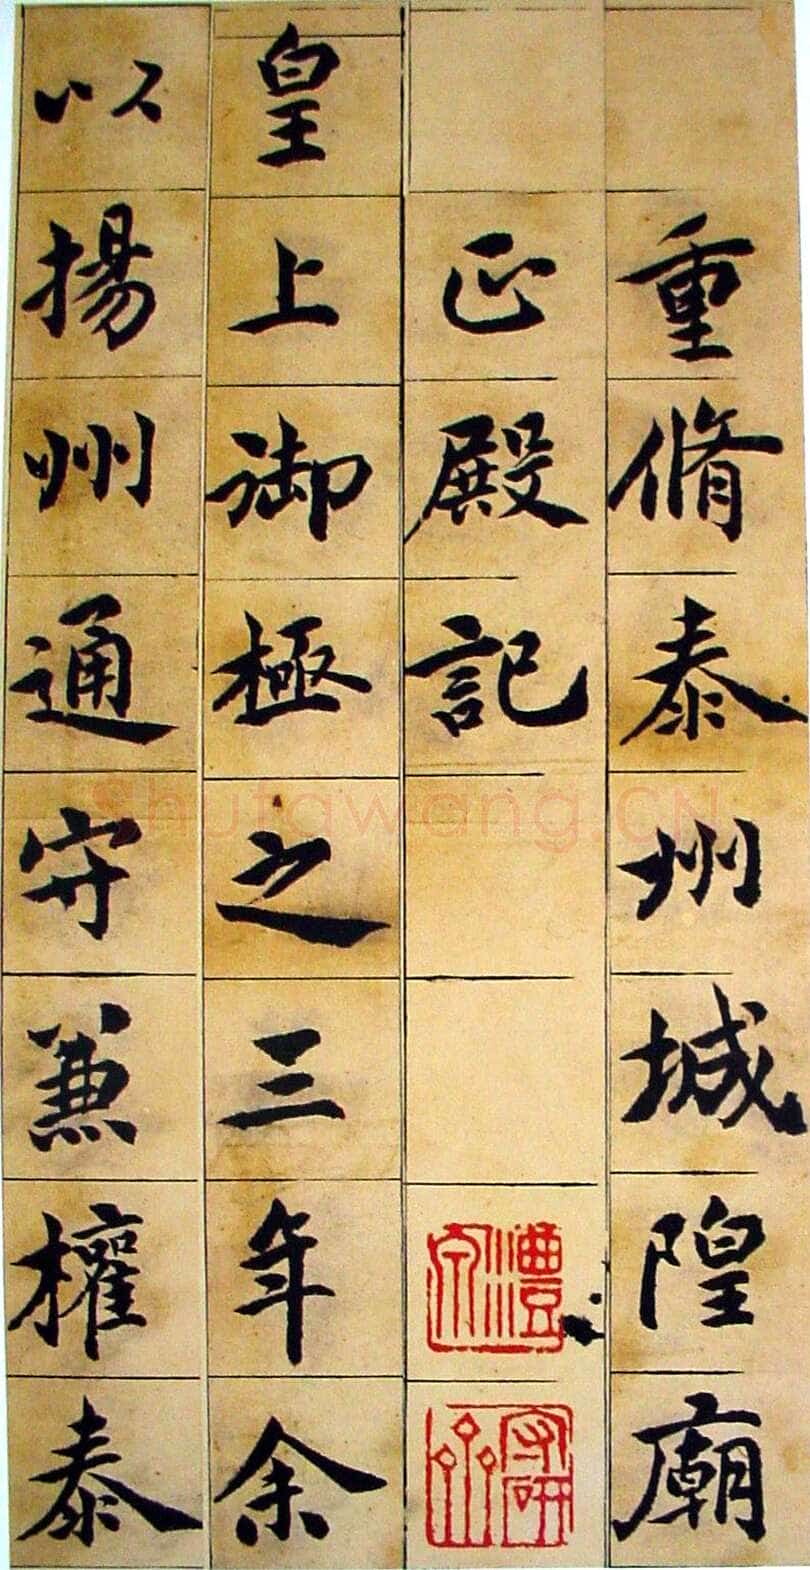 重脩泰州城隍廟
正殿記
皇上御極之三年余
以揚州通守兼權泰
shufawang.CN